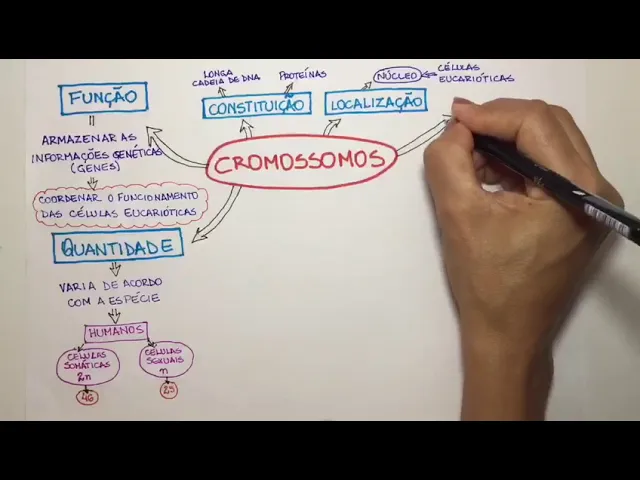 FUNÇÃO
ARMAZENAR AS
INFORMAÇÕES GENÉTICAS
(GENES)
COORDENAR O FUNCIONAMENTO
DAS CÉLULAS EUCARIÓTICAS
QUANTIDADE
VARIA DE ACORDO
COM A ESPÉCIE
HUMANOS
CÉLULAS
SOMÁTICAS
2n
46
CÉLULAS
SEXUAIS
n
23
LONGA
CADEIA DE DNA
PROTEÍNAS
CONSTITUIÇÃO
NÚCLEO
CÉLULAS
EUCARIÓTICAS
LOCALIZAÇÃO
CROMOSSOMOS